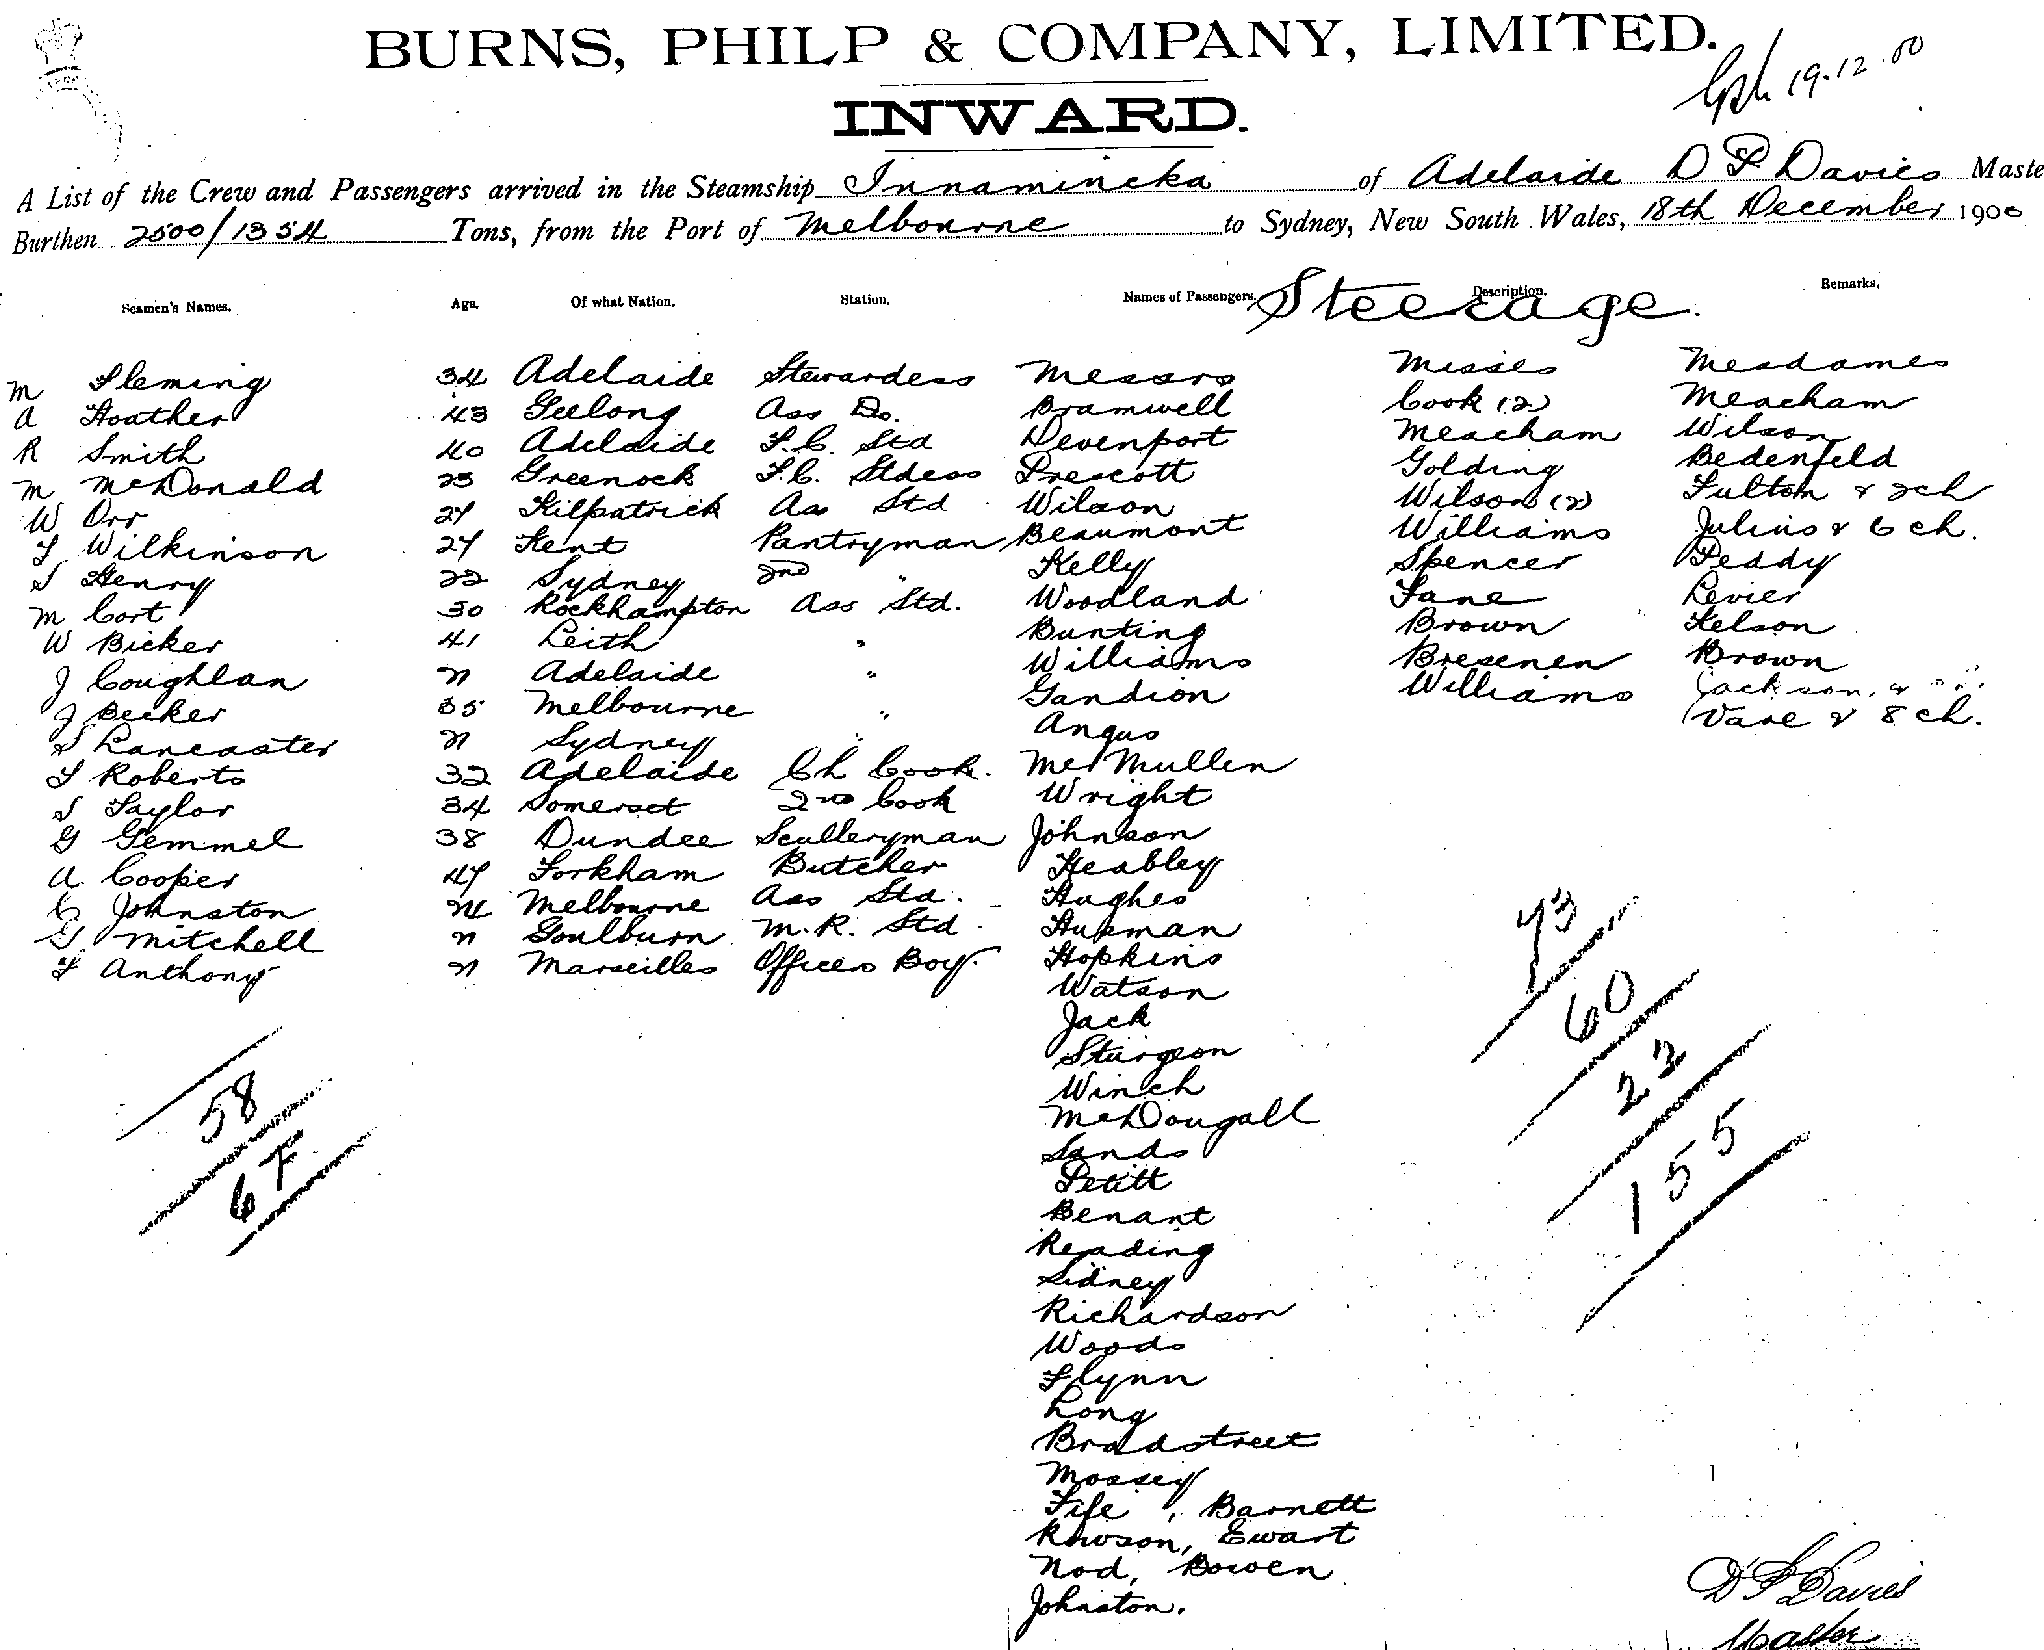 BURNS, PHILP & COMPANY, LIMITED.
19.12.00
INWARD.
A List of the Crew and Passengers arrived in the Steamship Innamincka of Adelaide D P Davies Maste
Burthen 2500/1354 Tons, from the Port of Melbourne to Sydney, New South Wales, 18th December 1900
Seamen's Names. Age. Of what Nation. Station. Names of Passengers. Description. Remarks.
Steerage.
M Fleming 34 Adelaide Stewardess Messrs Misses Mesdames
A Hoather 43 Geelong Ass Do. Bramwell Cook (2) Meacham
R Smith 40 Adelaide F.C. Std Devenport Meacham Wilson
M McDonald 25 Greenock F.C. Stdess Prescott Golding Bedenfeld
W Orr 27 Kilpatrick Ass Std Wilson Wilson (2) Fulton & 2ch
F Wilkinson 27 Kent Pantryman Beaumont Williams Julius & 6 ch.
S Henry 22 Sydney 2nd " Kelly Spencer Peddy
M Cort 30 Rockhampton Ass Std. Woodland Fane Levier
W Bicker 41 Leith " Bunting Brown Kelson
J Coughlan 21 Adelaide " Williams Bresenen Brown
J Becker 35 Melbourne " Gandion Williams Jackson, &
S Lancaster 21 Sydney " Angus Vare & 8 ch.
F Roberts 32 Adelaide Ch Cook. McMullen
S Taylor 34 Somerset 2nd Cook Wright
G Gemmel 38 Dundee Sculleryman Johnson
A Cooper 47 Forkham Butcher Heabley
C Johnston 24 Melbourne Ass Std. Hughes
G Mitchell 21 Goulburn M.R. Std. Husman
F Anthony 21 Marseilles Officers Boy. Hopkins
Watson
Jack
Sturgeon
Winch
McDougall
Sands
Petitt
Benant
Reading
Sidney
Richardson
Woods
Flynn
Long
Bradstreet
Mossey
Fife, Barnett
Rowson, Ewart
Nod, Bowen
Johnston.
58
6F
73
60
22
155
D P Davies
Master